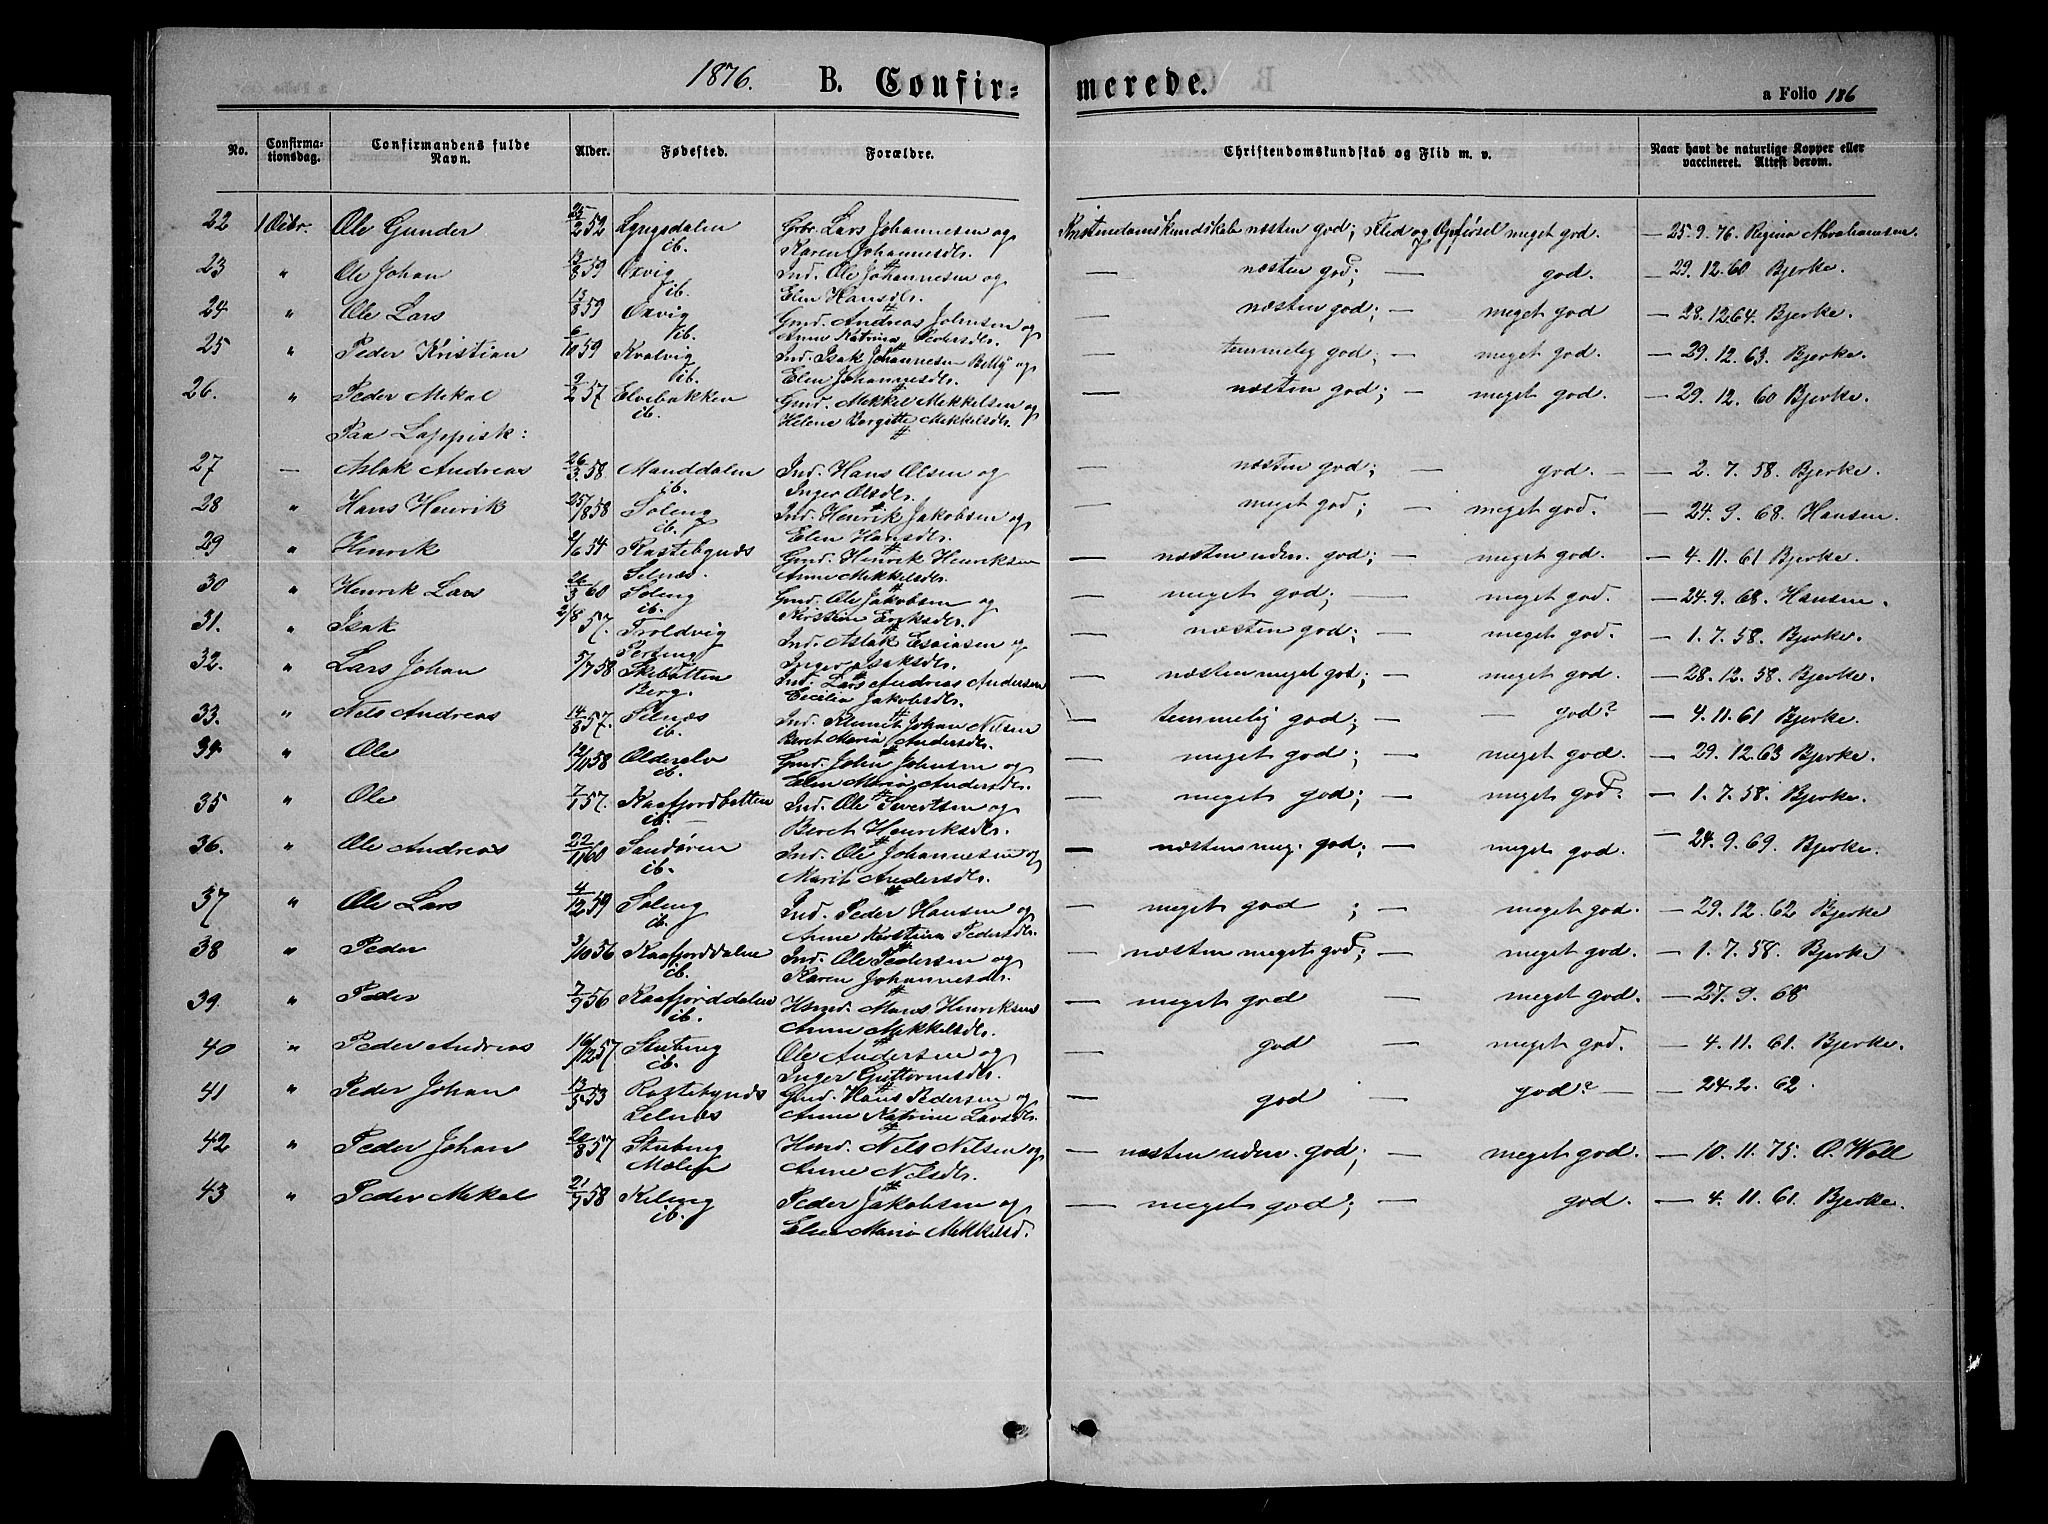 1876. B. Confirmerede. a Folio 186
No. Confirmationsdag. Confirmandens fulde Navn. Alder. Fødested. Forældre. Christendomskundskab og Flid m. v. Naar havt de naturlige Kopper eller vaccineret. Attest derom.
22 1 Octbr. Ole Gunder 25/2 52 Lyngsdalen Gbr. Lars Johannesen og Kristendomskundskab næsten god; Flid og Opførsel meget god. — 25. 9. 76 Regina Abrahamsen.
ib. Karen Johannesdtr.
23 " Ole Johan 13/8 59 Oxvig Ind. Ole Johannesen og — næsten god; — god. — 29. 12. 60 Bjerke.
ib. Elen Hansdtr.
24 " Ole Lars 13/8 59 Oxvig Gmd. Andreas Johnsen og — næsten god; — meget god — 28. 12. 64. Bjerke.
ib. Anne Katrina Pedersdtr.
25 " Peder Kristian 6/10 59 Kvalvig Ind. Isak Johannesen og — temmelig god; — meget god. — 29. 12. 63. Bjerke.
ib. Elen Johannesdtr.
26. " Peder Mekal 9/2 57 Elvebakken Gmd. Mekkel Mekkelsen og — næsten god; — meget god. — 29. 12. 60 Bjerke.
ib. Helene Birgitte Mekkelsdtr.
Paa Lappisk:
27 — Aslak Andreas 26/3 58 Manddalen Ind. Hans Olsen og — næsten god; — god. — — 2. 7. 58. Bjerke.
ib. Inger Olsdtr.
28 " Hans Henrik 25/8 58 Soleng Ind. Henrik Jakobsen og — meget god; — meget god. — 24. 9. 68. Hansen.
ib. Elen Hansdtr.
29 " Henrik 9/6 54 Rastebynæs Gmd. Henrik Henriksen — næsten uden. god; — meget god. — 4. 11. 61 Bjerke.
Selnæs. Anne Mekkelsdtr.
30 " Henrik Lars 26/3 60 Soleng Gmd. Ole Jakobsen og — meget god; — meget god. — 24. 9. 68. Hansen.
ib. Kirstine Eriksdtr.
31. " Isak 2/8 57. Troldvig Ind. Aslak Esaiasen og — næsten god; — meget god. — 1. 7. 58. Bjerke.
Inger Isaksdtr.
32. " Lars Johan 5/7 58 Skibotten Ind. Lars Andreas Andersen — næsten meget god; — meget god. — 28. 12. 58. Bjerke.
Berg. Cecilia Jakobsdtr.
33. " Nels Andreas 14/8 57. Selnæs Ind. Klemet Johan Nilsen — temmelig god; — — god? — 4. 11. 61 Bjerke.
ib. Beret Maria Andersdtr.
34 " Ole 12/11 58 Olderelv Gmd. John Johnsen og — meget god; — meget god. — 29. 12. 63 Bjerke.
ib. Elen Maria Andersdtr.
35 " Ole 7/1 57. Kaafjordbotten Ind. Ole Sivertsen og — meget god; — meget god. — 1. 7. 58. Bjerke.
ib. Beret Henriksdtr.
36. " Ole Andreas 22/11 60 Sandøren Ind. Ole Johannesen og — næsten meg. god; — meget god. — 24. 9. 69. Bjerke.
ib. Marit Andersdtr.
37 " Ole Lars 4/12 59 Soleng Ind. Peder Hansen og — meget god ; — meget god. — 29. 12. 62 Bjerke
ib. Anne Kerstina Pedersdtr.
38 " Peder 3/10 56 Kaafjorddalen Ind. Ole Pedersen og — næsten meget god; — meget god. — 1. 7. 58. Bjerke
ib. Karen Johannesdtr.
39. " Peder 7/9 56 Kaafjorddalen Hmd. Mons Henriksen — meget god — meget god. — 27. 9. 68
ib. Anne Mekkelsdtr.
40 " Peder Andreas 16/12 57 Stubeng Ole Andersen og — god — meget god. — 4. 11. 61. Bjerke.
ib. Inger Guttormsdtr.
41 " Peder Johan 13/5 53 Rastebynæs Gmd. Hans Pedersen og — god — god? — — 24. 2. 62.
Selnæs Anne Katrine Larsdtr.
42 " Peder Johan 20/8 57 Stubeng Hmd. Nels Nilsen og — næsten uden. god; — meget god. — 10. 11. 75. O. Woll
Anne Nilsdtr.
43 " Peder Mekal 21/9 58 Kileng Peder Jakobsen og — meget god; — god. — 4. 11. 61. Bjerke.
ib. Elen Maria Mekkelsd.